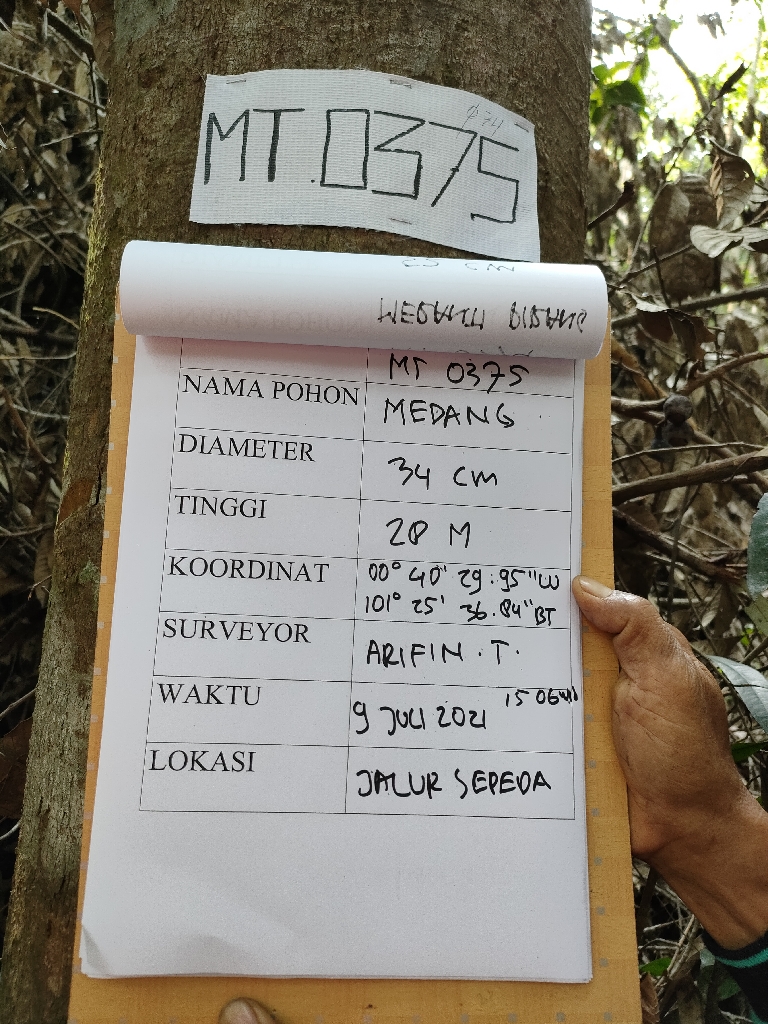 MT.0375
MT 0375
NAMA POHON MEDANG
DIAMETER 34 CM
TINGGI 28 M
KOORDINAT 00° 40' 29.95" LU
101° 25' 36.84" BT
SURVEYOR ARIFIN.T.
WAKTU 9 JULI 2021 15 06
LOKASI JALUR SEPEDA